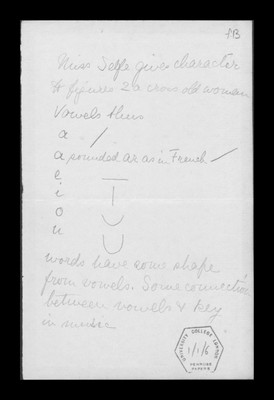 1B
Miss Selfe gives character
to figures 2 a cross old woman
Vowels thus
a
a sounded ar as in French
e
i
o
u
words have some shape
from vowels. Some connection
between vowels & key
in music
UNIVERSITY COLLEGE LONDON
1/1/6
PENROSE
PAPERS